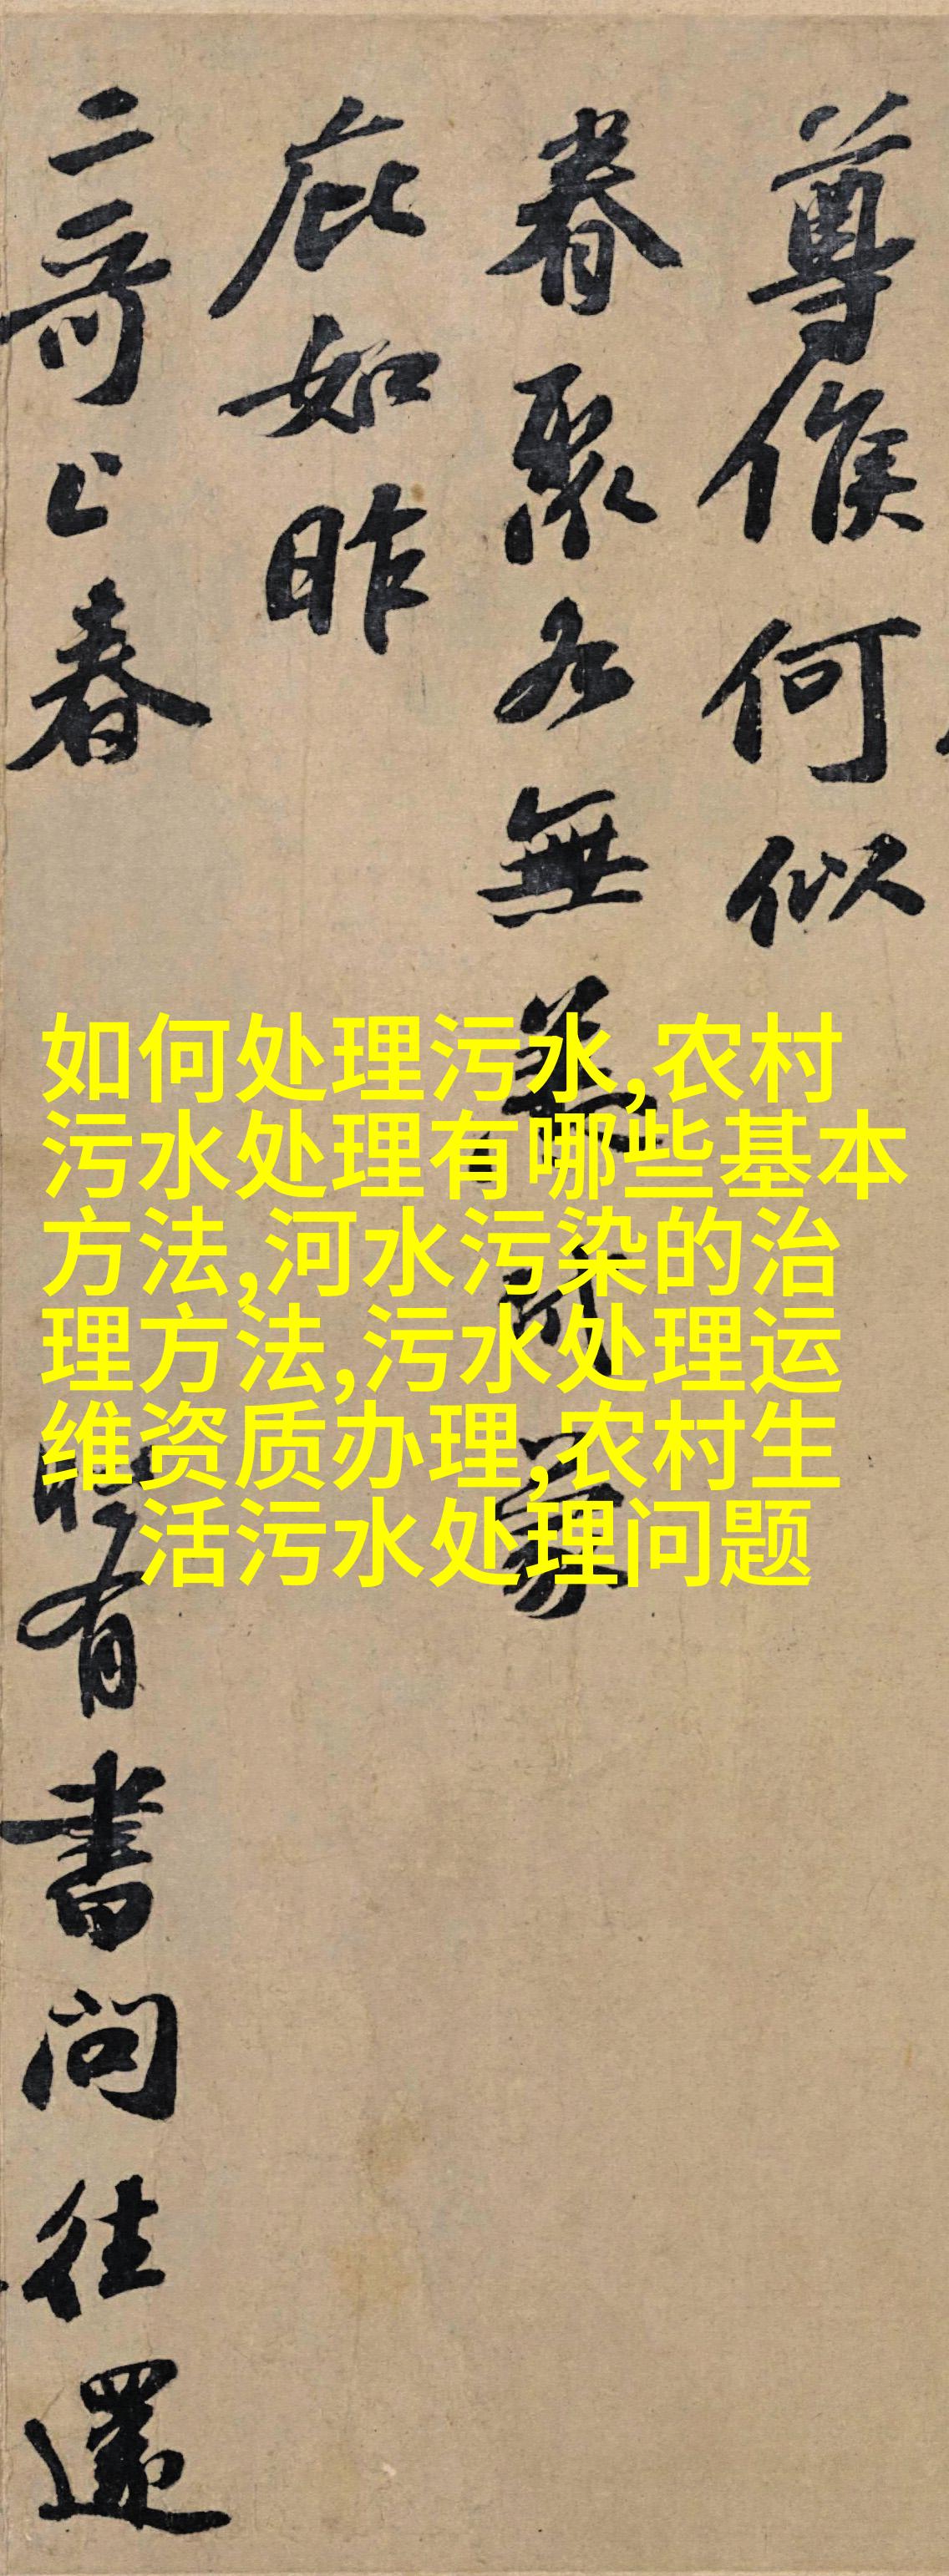 尊候何似
眷聚各無恙明蒙
庇如昨
二哥上春
時有書問往還
如何处理污水,农村
污水处理有哪些基本
方法,河水污染的治
理方法,污水处理运
维资质办理,农村生
活污水处理问题